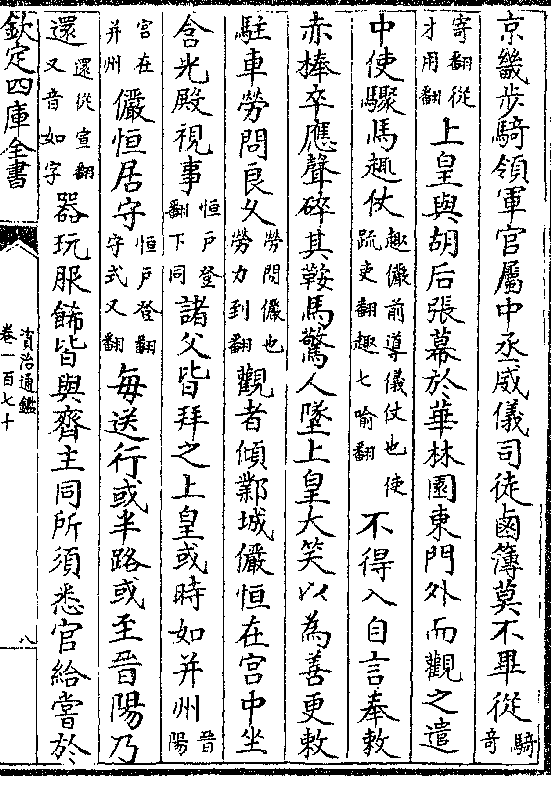 京畿步騎領軍官屬中丞威儀司徒鹵簿莫不畢從騎奇
寄翻從才用翻上皇與胡后張幕於華林園東門外而觀之遣
中使驟馬趣仗趣儼前導儀仗也使疏吏翻趣七喻翻不得入自言奉敕
赤捧卒應聲碎其鞍馬驚人墜上皇大笑以為善更敕
駐車勞問良久勞問儼也勞力到翻觀者傾鄴城儼恒在宫中坐
含光殿視事恒戸登翻下同諸父皆拜之上皇或時如并州晉陽
宫在并州儼恒居守恒戸登翻守式又翻每送行或半路或至晉陽乃
還還從宣翻又音如字器玩服飾皆與齊主同所須悉官給嘗於
欽定四庫全書
資治通鑑
卷一百七十
八